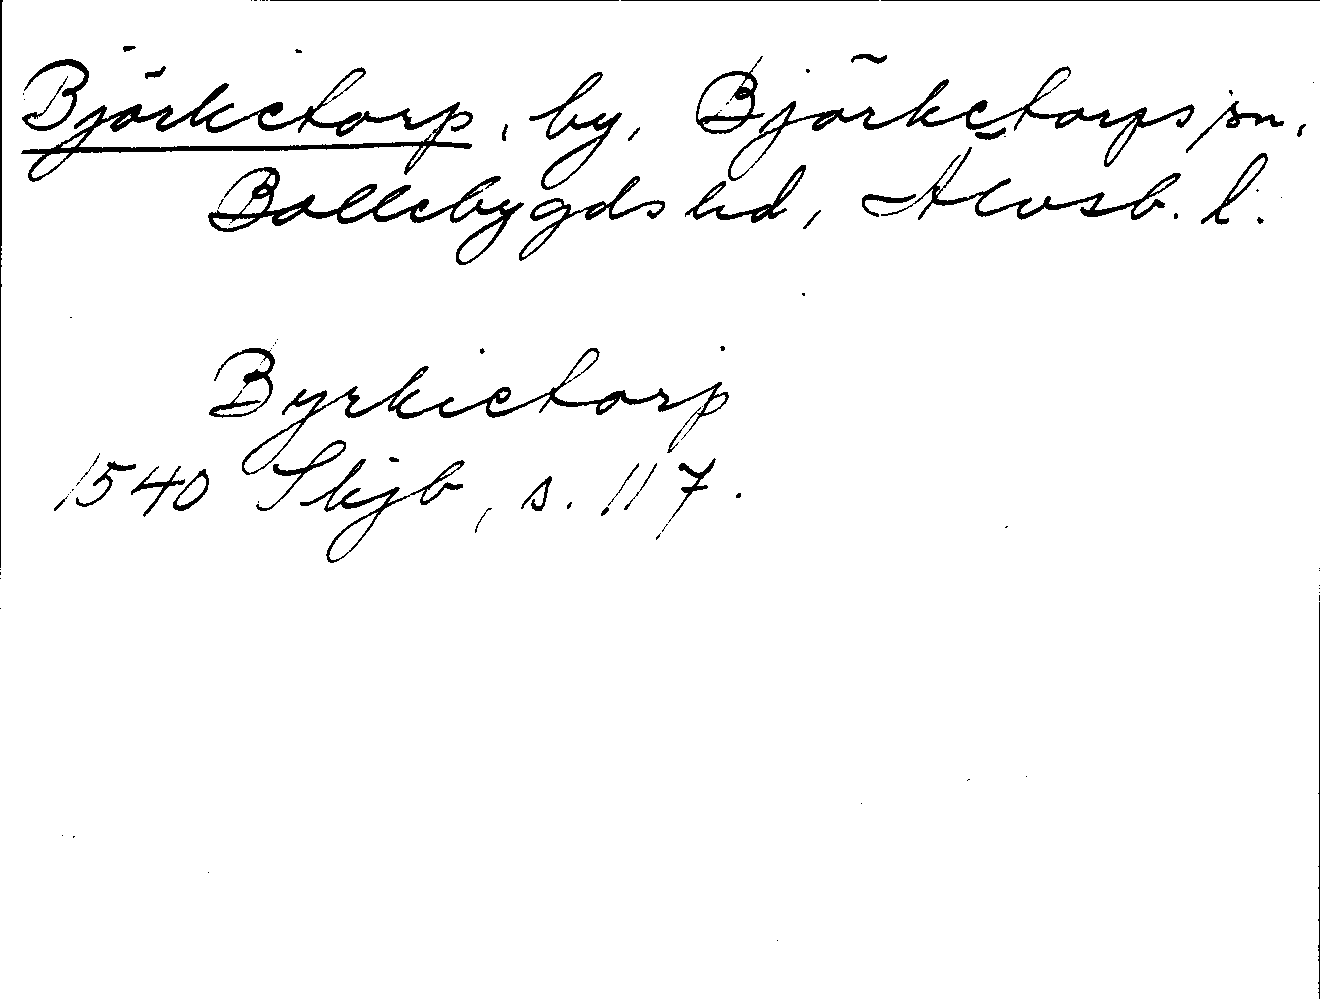 Björketorp, by, Björketorps sn,
Bollebygds hd, Älvsb. l.
Byrkietorp
1540 Skjb, s. 117.